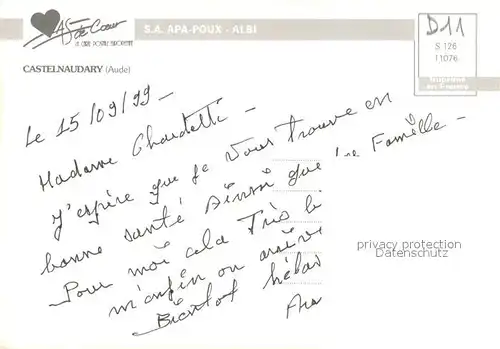 As de Cœur
LA CARTE POSTALE EUROPEENNE
S.A. APA-POUX - ALBI
D11
S 126
11076
Imprimé
en France
CASTELNAUDARY (Aude)
Le 15/09/99 -
Madame Chardetti -
J'espère que je vous trouve en
bonne santé Ainsi que Famille -
Pour moi cela Très
m'enfin on arrive
Bientot hélas
privacy protection
Datenschutz